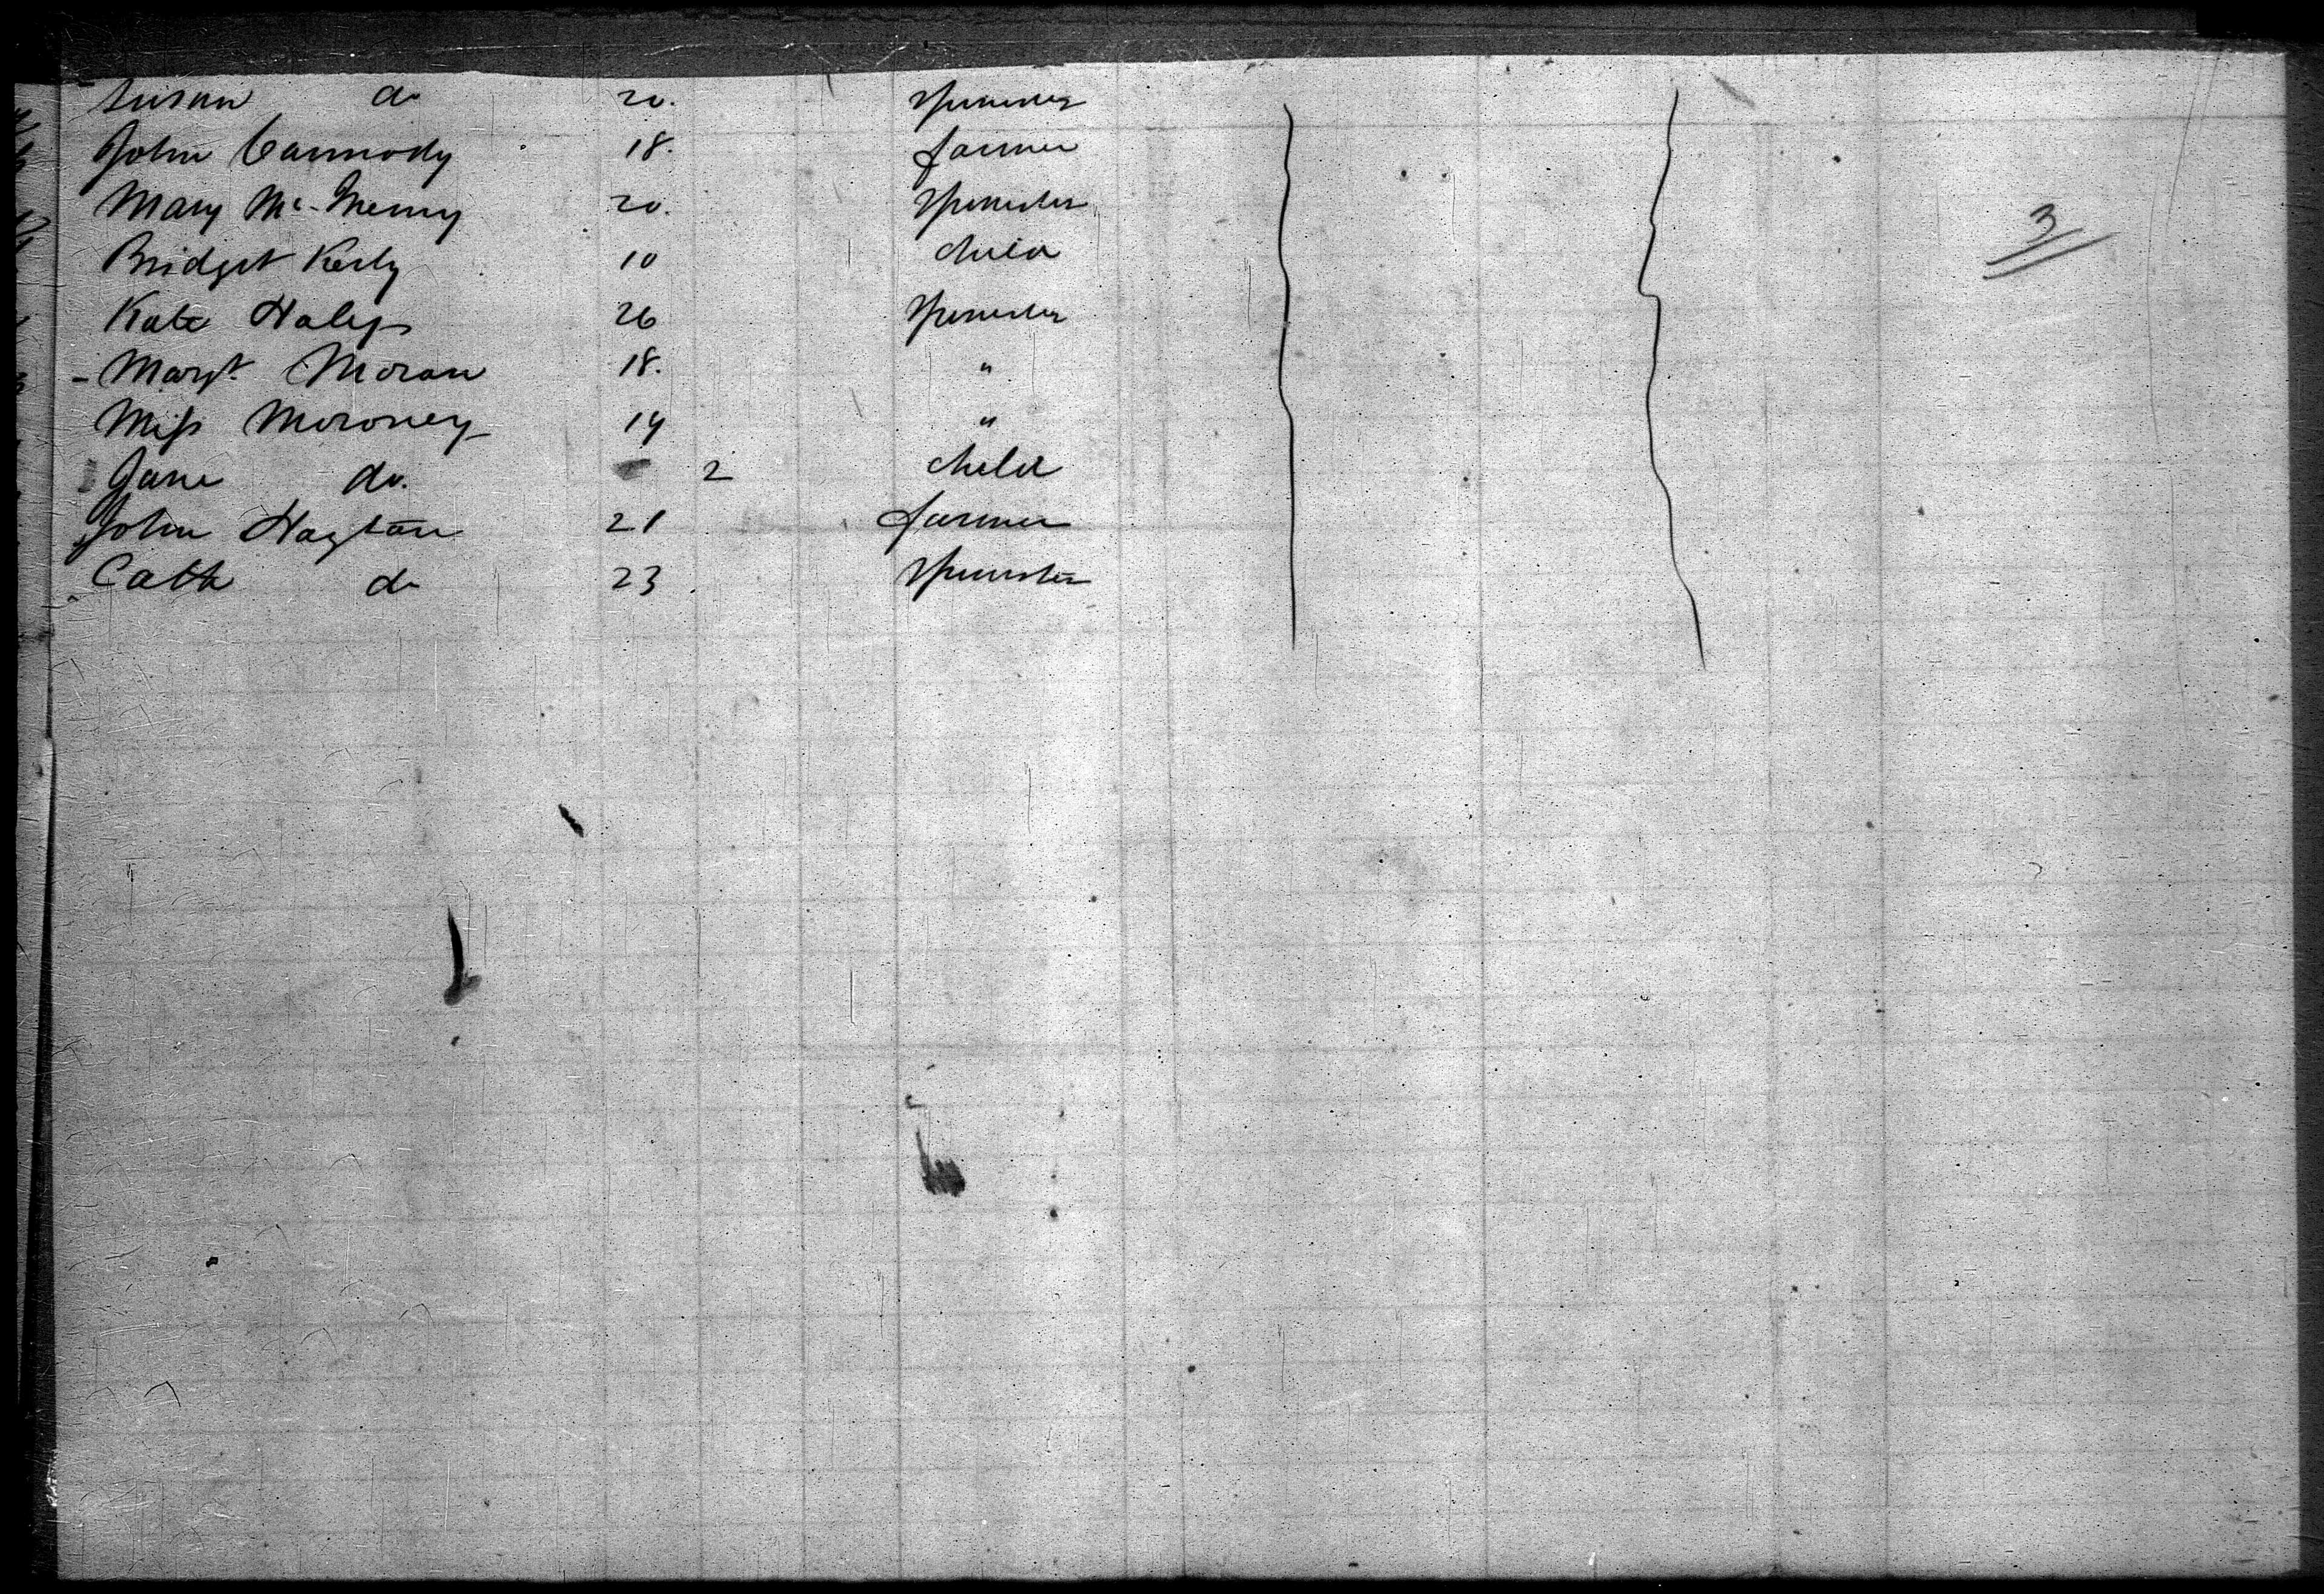 Susan do 20. Spinster
John Carmody 18. farmer
Mary Mc. 20. Spinster
Bridget Kerly 10 child
Kate Haley 26 Spinster
Margt. Moran 18. "
Miss Moroney 14 "
Jane do. 2 child
John Haytan 21 farmer
Cath do 23 Spinster
3